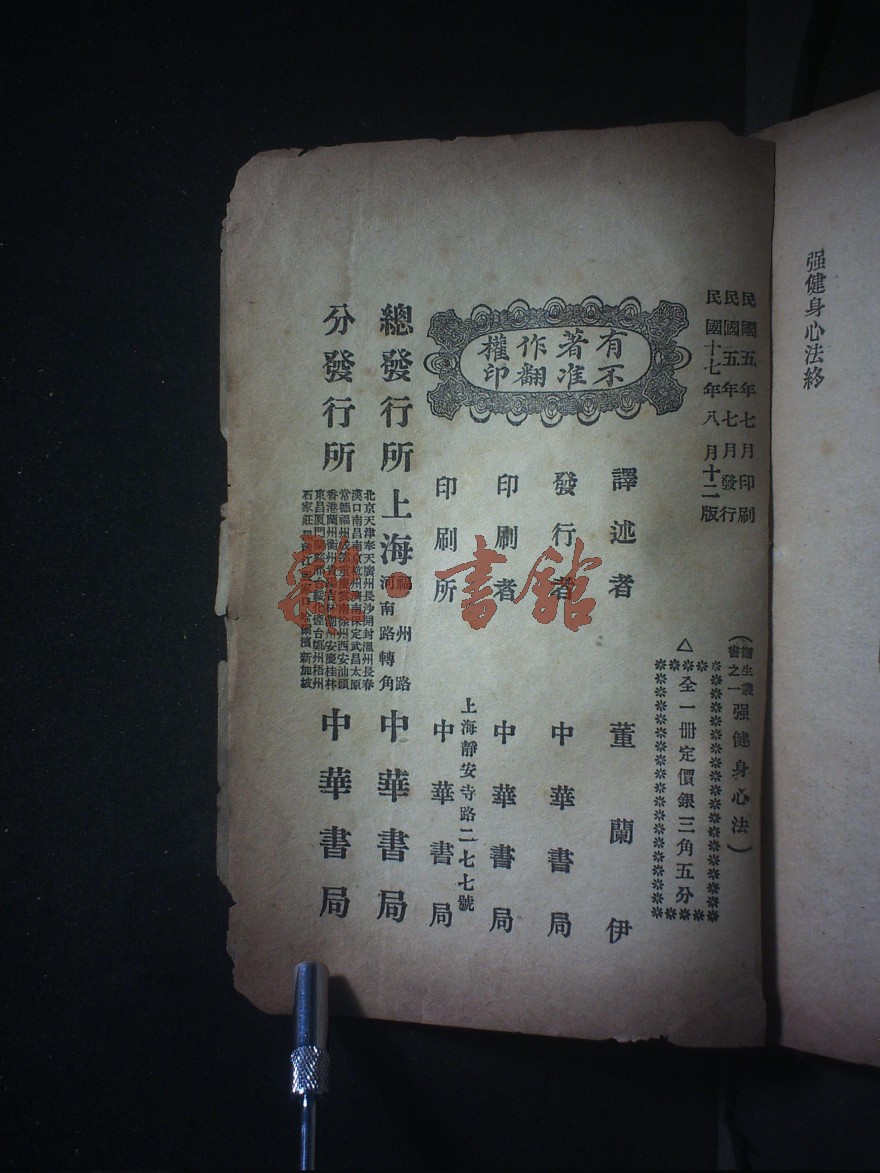 强健身心法終
民國五年七月印刷
民國五年七月發行
民國十七年八月十二版
(衞生叢書之一强健身心法)
△全一冊定價銀三角五分
有著作權
不准翻印
譯述者 董蘭伊
發行者 中華書局
印刷者 中華書局
上海靜安寺路二七七號
印刷所 中華書局
總發行所 上海福州路河南路轉角 中華書局
分發行所 中華書局
北京天津奉天廣州長沙開封溫州長春
漢口南昌南京杭州濟南保定武昌太原
常德福州成都重慶雲南徐州西安汕頭
香港蘭州衡州 潮州安慶桂林
東昌廈門 煙台鄭州梧州
石家莊 新加坡
書館